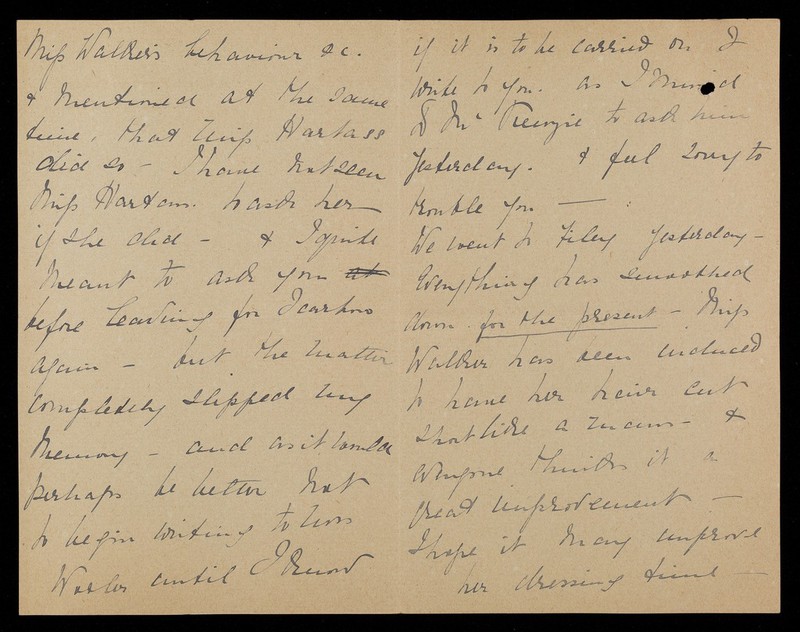 Miss Walker's behaviour &c.
& mentioned at the same
time, that Miss Hartass
did so – I have not seen
Miss Hartass. to ask her
if she did – & I quite
meant to ask you at
before leaving for Scarboro
again – but the matter
completely slipped my
memory – and as it would
perhaps be better not
to begin writing to
until I know
if it is to be carried on I
write to you. as I
to ask him
yesterday. & feel sorry to
trouble you —
We went to Filey yesterday –
Everything has smoothed
down for the present – Miss
Walker has been induced
to have her hair cut
short like a man's – &
everyone thinks it a
great improvement –
I hope it may improve
her dressing time —